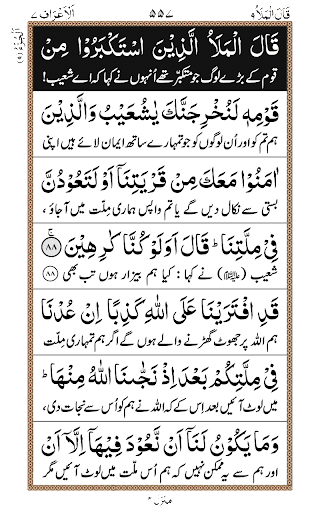 قَالَ الْمَلَاُ ٩ ۵۵۷ اَلْاَعْرَاف ٧
قَالَ الْمَلَاُ الَّذِيْنَ اسْتَكْبَرُوْا مِنْ
قوم کے بڑے لوگ جو متکبر تھے اُنہوں نے کہا کہ اے شعیب!
قَوْمِهٖ لَنُخْرِجَنَّكَ يٰشُعَيْبُ وَالَّذِيْنَ
ہم تم کو اور اُن لوگوں کو جو تمہارے ساتھ ایمان لائے ہیں اپنی
اٰمَنُوْا مَعَكَ مِنْ قَرْيَتِنَاۤ اَوْ لَتَعُوْدُنَّ
بستی سے نکال دیں گے یا تم واپس ہماری مِلّت میں آجاؤ،
فِيْ مِلَّتِنَا ؕ قَالَ اَوَلَوْ كُنَّا كٰرِهِيْنَ ٨٨
شعیب (علیہ السلام) نے کہا: کیا ہم بیزار ہوں تب بھی (۸۸)
قَدِ افْتَرَيْنَا عَلَى اللّٰهِ كَذِبًا اِنْ عُدْنَا
ہم اللہ پر جھوٹ گھڑنے والے ہوں گے اگر ہم تمہاری مِلّت
فِيْ مِلَّتِكُمْ بَعْدَ اِذْ نَجّٰىنَا اللّٰهُ مِنْهَا ؕ
میں لوٹ آئیں بعد اِس کے کہ اللہ نے ہم کو اُس سے نجات دی،
وَمَا يَكُوْنُ لَنَاۤ اَنْ نَّعُوْدَ فِيْهَاۤ اِلَّاۤ اَنْ
اور ہم سے یہ ممکن نہیں کہ ہم اُس ملّت میں لوٹ آئیں مگر
منزل ۲